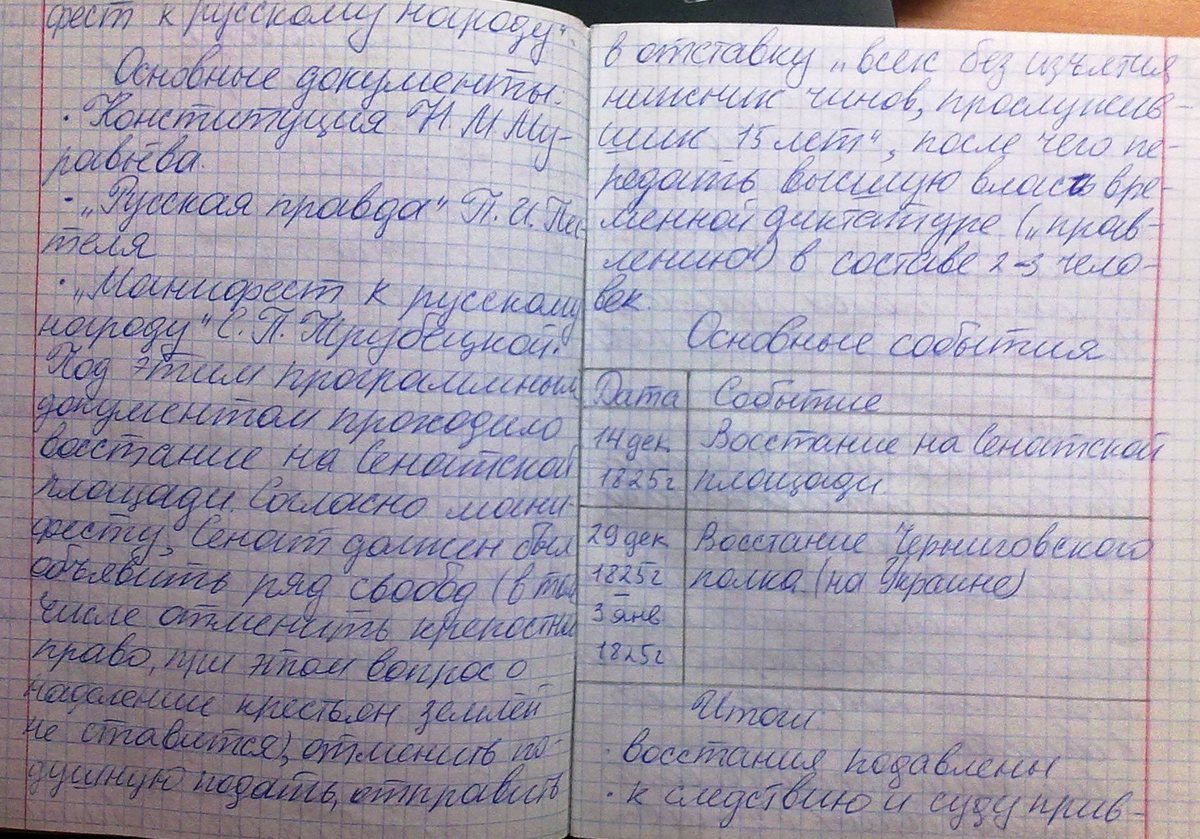 фест к русскому народу".
Основные документы:
• Конституция Н М Му-
равьёва.
• „Русская правда" П. И. Пес-
теля
• „Манифест к русскому
народу" С. П. Трубецкой.
Под этим программным
документом проходило
восстание на Сенатской
площади. Согласно мани-
фесту, Сенат должен был
объявить ряд свобод (в том
числе отменить крепостное
право, при этом вопрос о
наделение крестьян землёй
не ставится), отменить по-
душную подать, отправить
в отставку „всех без изъятия
нижних чинов, прослужив-
ших 15 лет", после чего пе-
редать высшую власть вре-
менной диктатуре („прав-
лению") в составе 2-3 чело-
век.
Основные события
Дата Событие
14 дек Восстание на Сенатской
1825г площади
29 дек Восстание Черниговского
1825г полка (на Украине)
–
3 янв
1825г
Итоги
• восстания подавлены
• к следствию и суду прив-